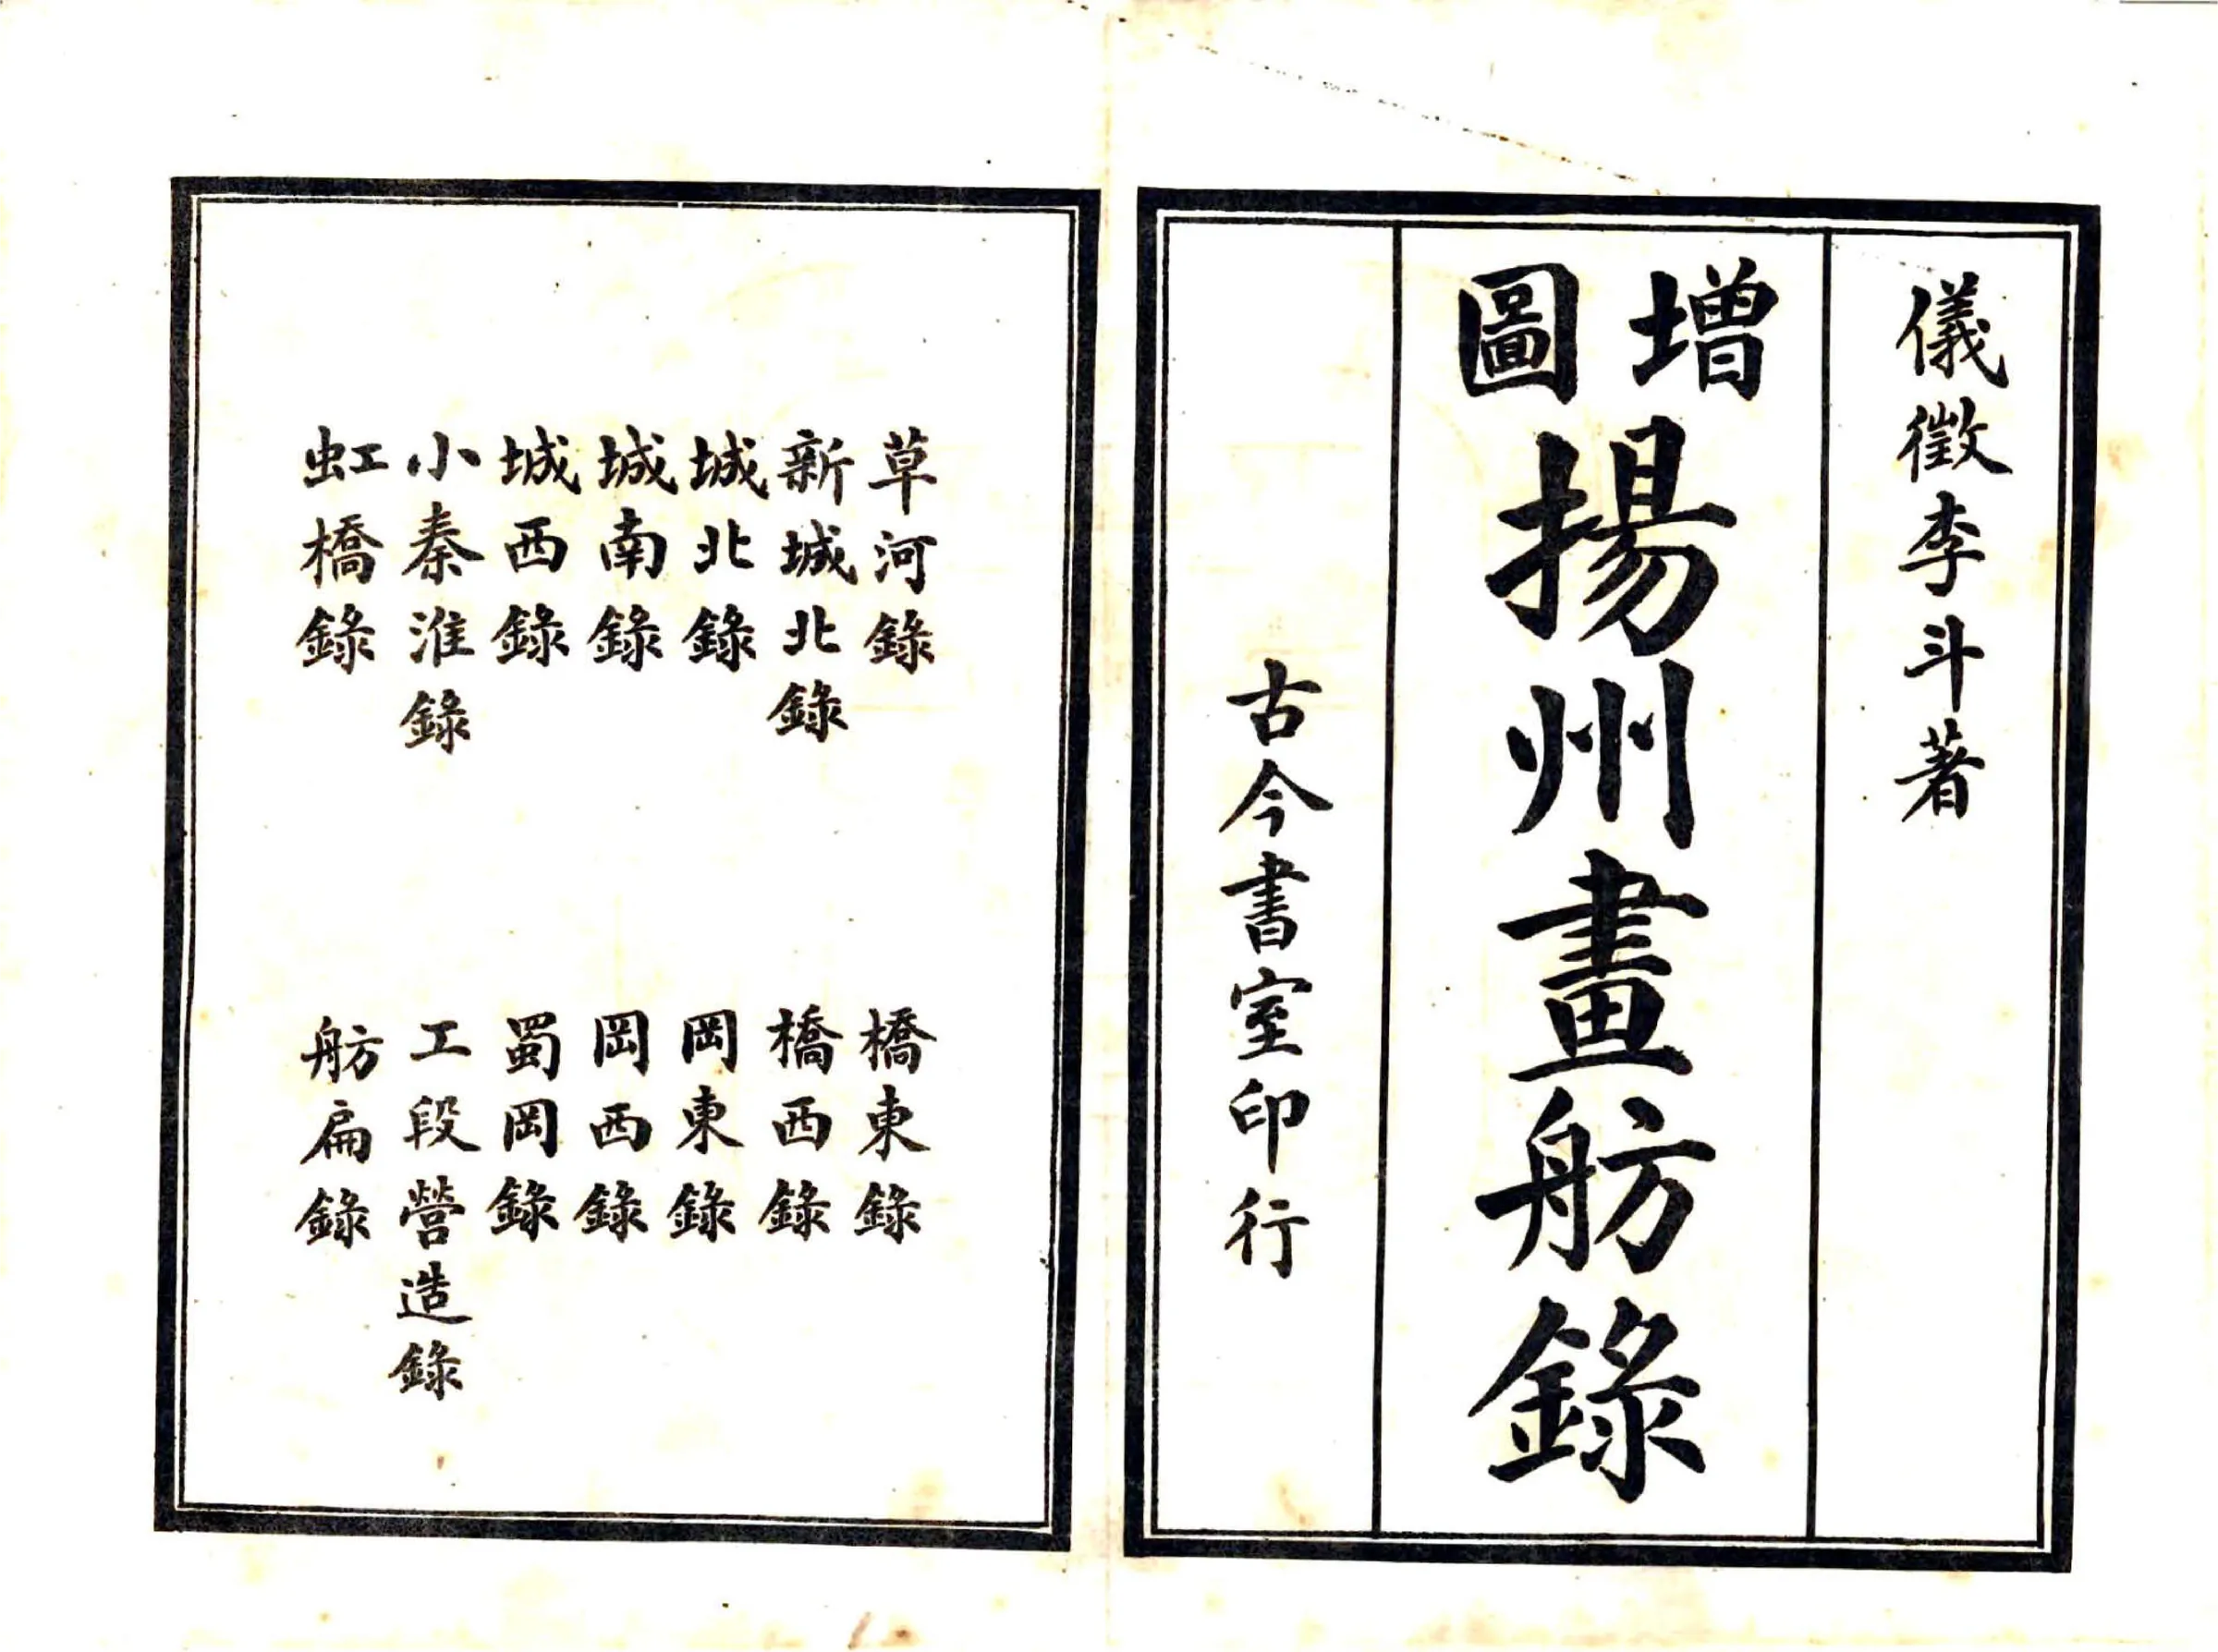 儀徵李斗著
增圖
揚州畫舫錄
古今書室印行
草河錄
新城北錄
城北錄
城南錄
城西錄
小秦淮錄
虹橋錄
橋東錄
橋西錄
岡東錄
岡西錄
蜀岡錄
工段營造錄
舫扁錄